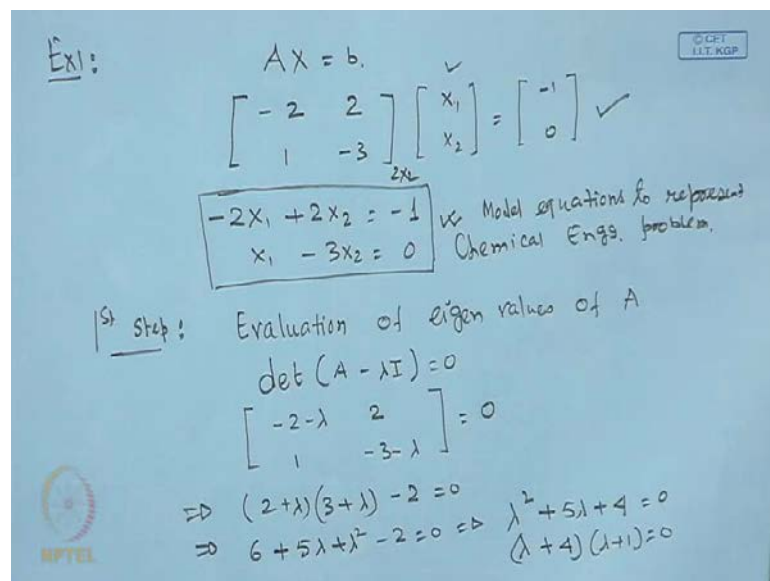 Ex1:
AX = b.
© CET
I.I.T. KGP
[ -2 2 ; 1 -3 ]2x2 [ x1 ; x2 ] = [ -1 ; 0 ] ✓
-2x1 + 2x2 = -1
x1 - 3x2 = 0
Model equations to represent
Chemical Engg. problem.
1st Step: Evaluation of eigen values of A
det (A - λI) = 0
[ -2-λ 2 ; 1 -3-λ ] = 0
⇒ (2+λ)(3+λ) - 2 = 0
⇒ 6 + 5λ + λ² - 2 = 0 ⇒ λ² + 5λ + 4 = 0
(λ + 4)(λ+1) = 0
NPTEL